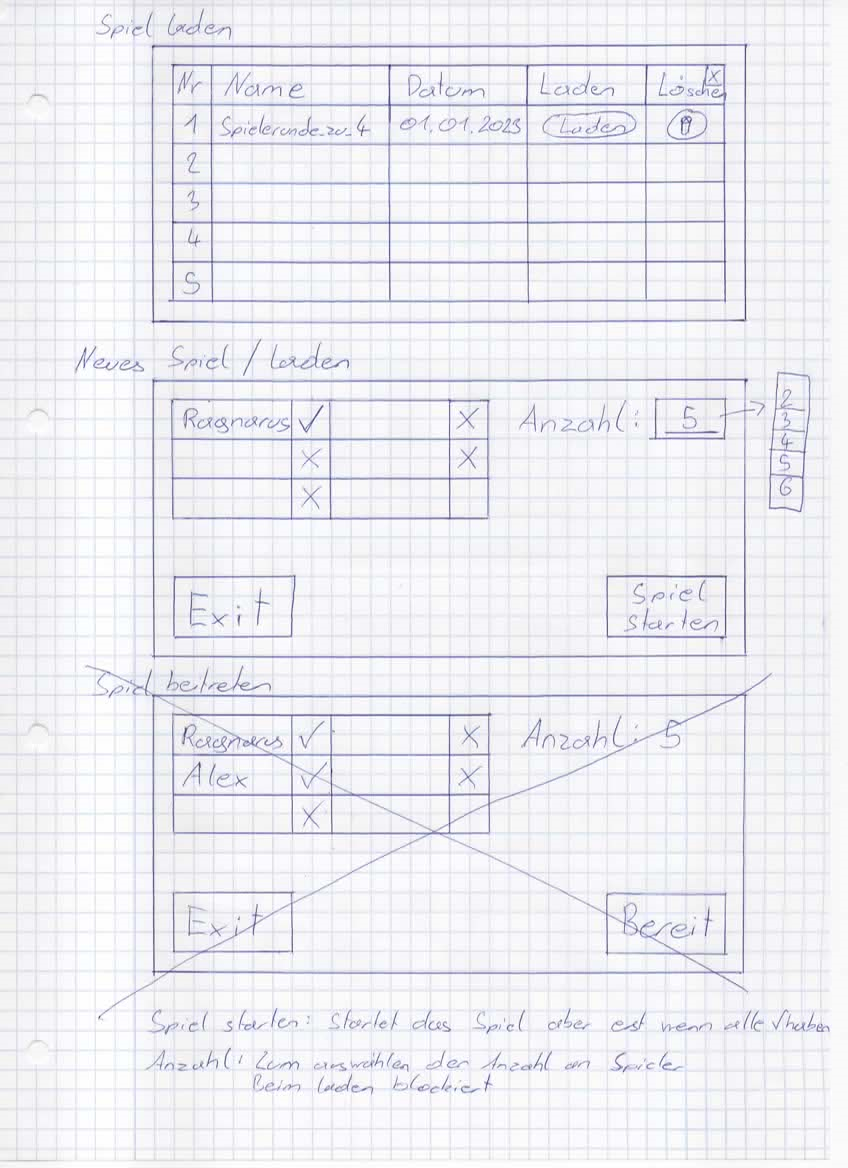 Spiel laden
Nr Name Datum Laden Löschen X
1 Spielerunde_zu_4 01.01.2023 Laden
2
3
4
5
Neues Spiel / Laden
Ragnarus ✓ X Anzahl: 5
X X
X
2
3
4
5
6
Exit Spiel starten
Spiel betreten
Ragnarus ✓ X Anzahl: 5
Alex ✓ X
X
Exit Bereit
Spiel starten: Startet das Spiel aber erst wenn alle ✓ haben
Anzahl: Zum auswählen der Anzahl an Spieler
Beim laden blockiert